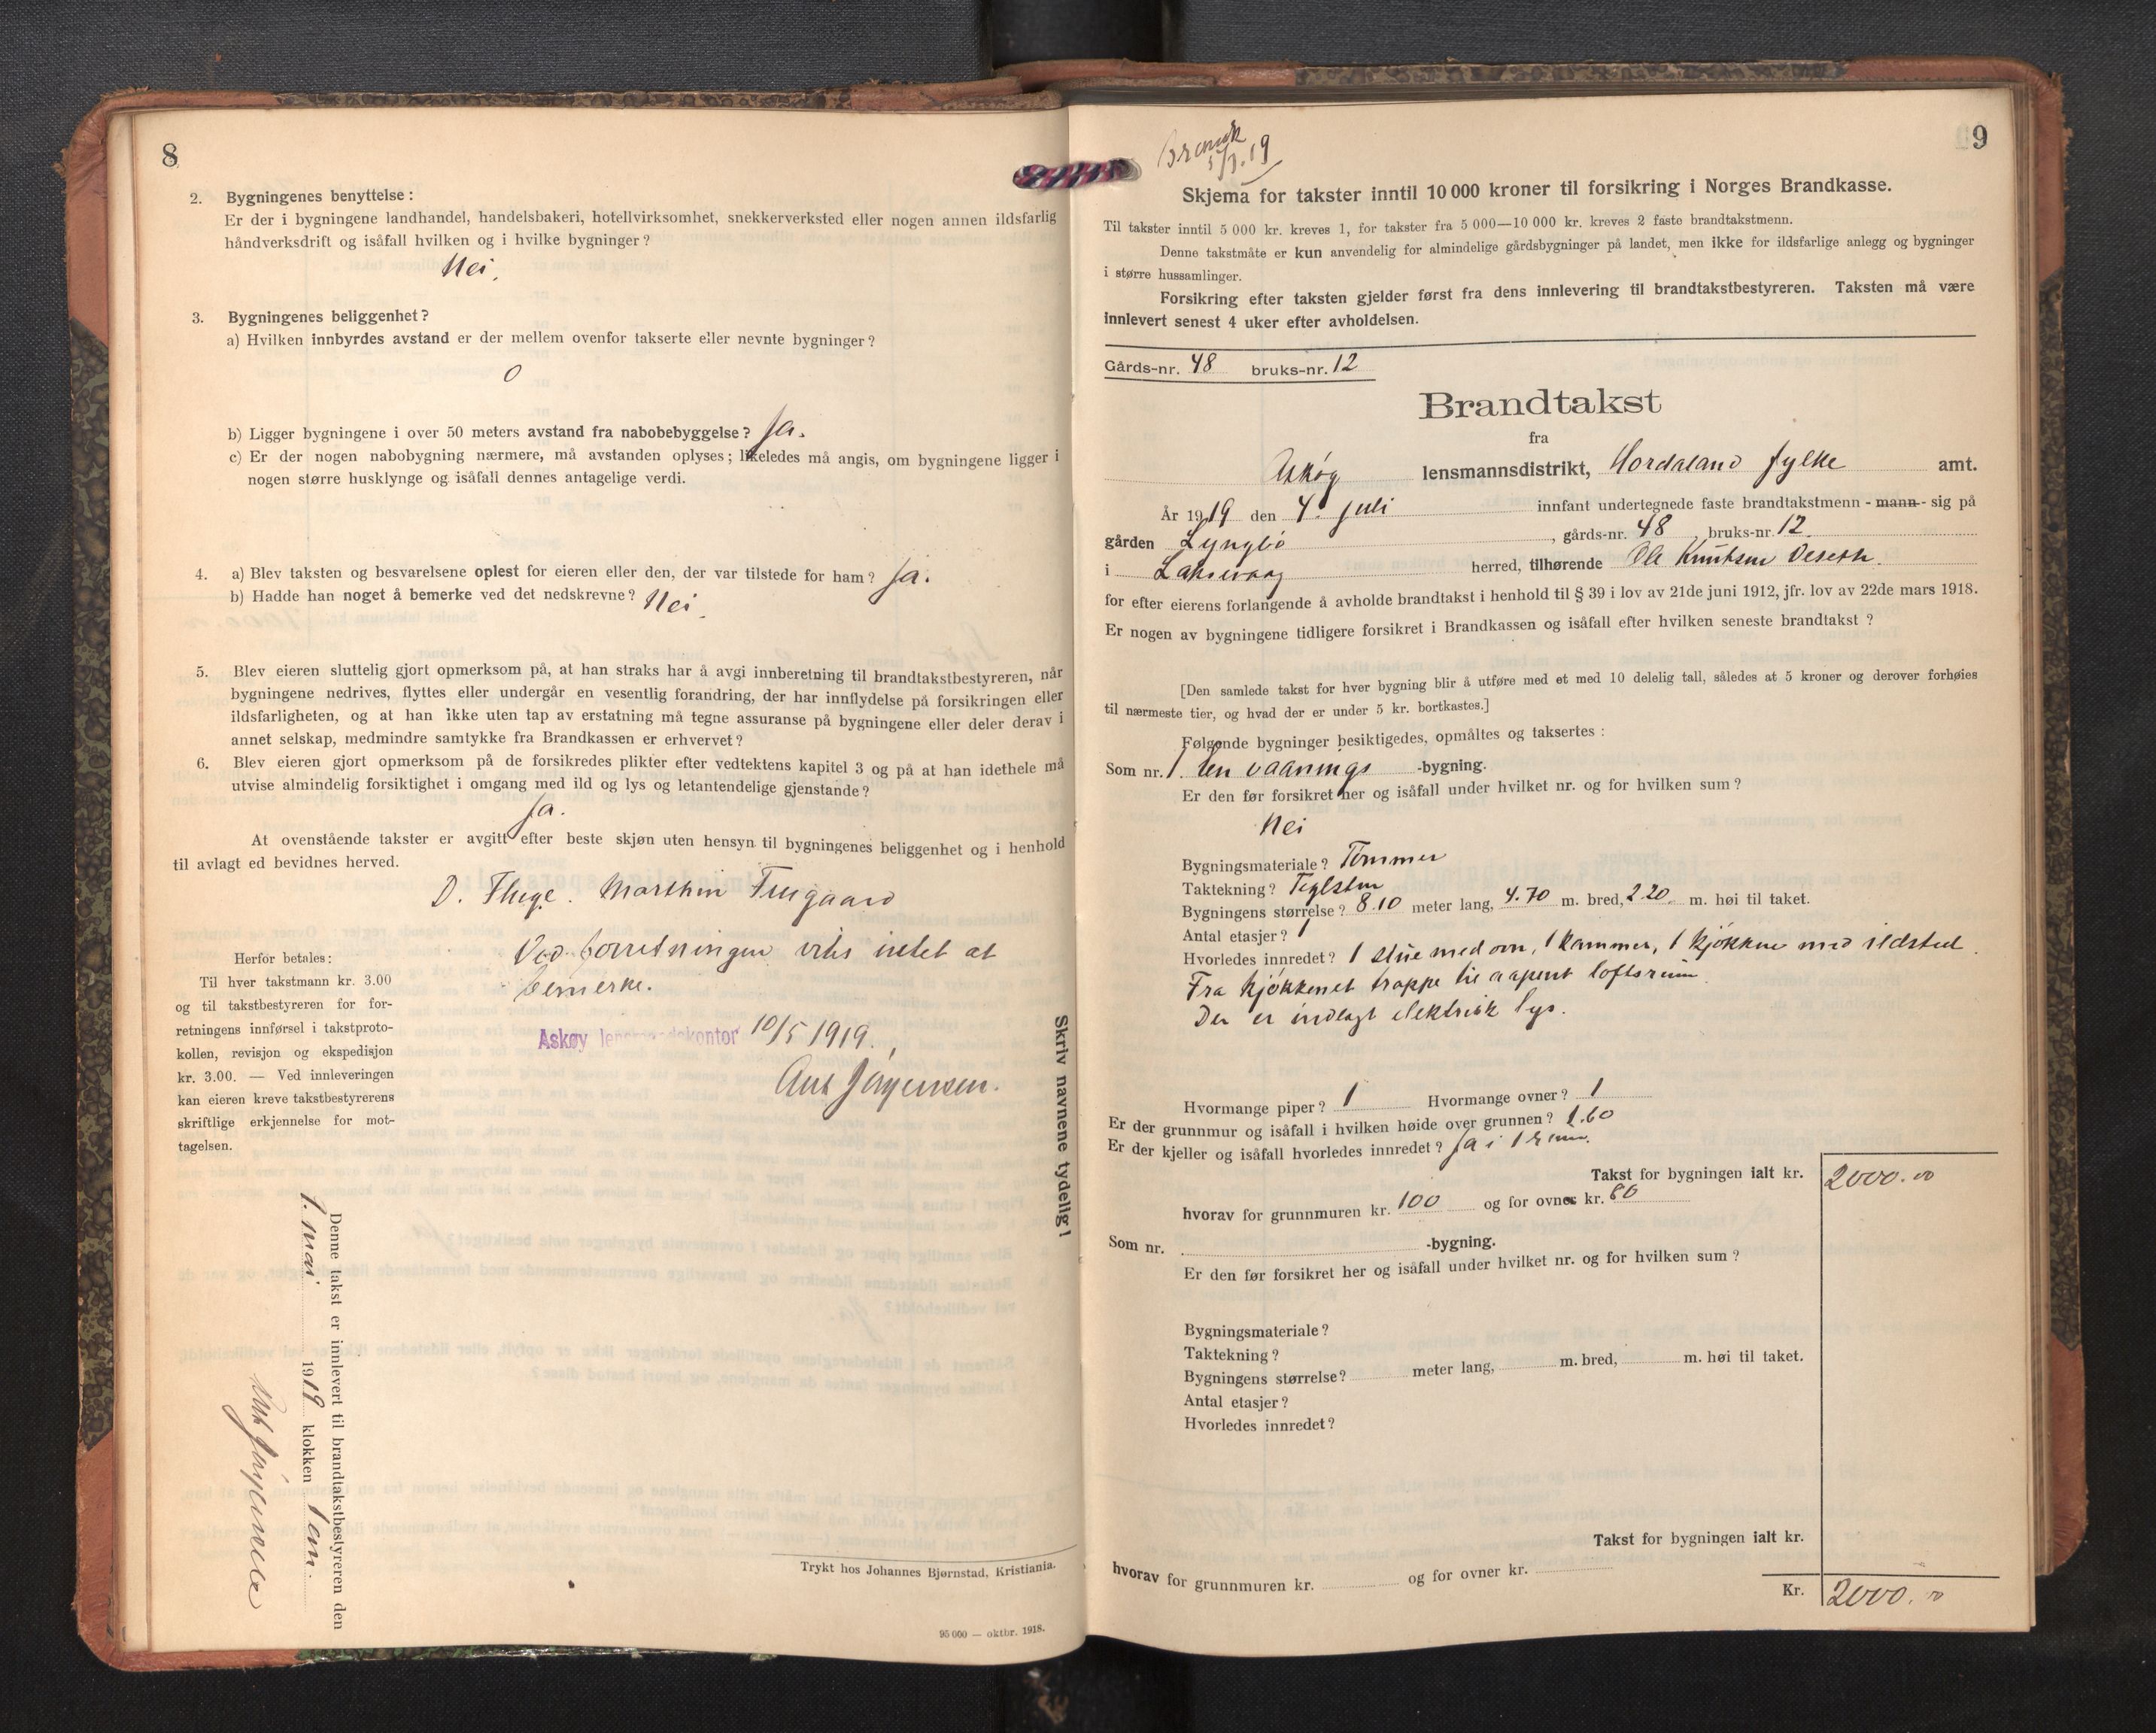 8
2. Bygningenes benyttelse:
Er der i bygningene landhandel, handelsbakeri, hotellvirksomhet, snekkerverksted eller nogen annen ildsfarlig
håndverksdrift og isåfall hvilken og i hvilke bygninger?
Nei.
3. Bygningenes beliggenhet?
a) Hvilken innbyrdes avstand er der mellem ovenfor takserte eller nevnte bygninger?
0
b) Ligger bygningene i over 50 meters avstand fra nabobebyggelse? Ja.
c) Er der nogen nabobygning nærmere, må avstanden oplyses; likeledes må angis, om bygningene ligger i
nogen større husklynge og isåfall dennes antagelige verdi.
4. a) Blev taksten og besvarelsene oplest for eieren eller den, der var tilstede for ham? Ja.
b) Hadde han noget å bemerke ved det nedskrevne? Nei.
5. Blev eieren sluttelig gjort opmerksom på, at han straks har å avgi innberetning til brandtakstbestyreren, når
bygningene nedrives, flyttes eller undergår en vesentlig forandring, der har innflydelse på forsikringen eller
ildsfarligheten, og at han ikke uten tap av erstatning må tegne assuranse på bygningene eller deler derav i
annet selskap, medmindre samtykke fra Brandkassen er erhvervet?
6. Blev eieren gjort opmerksom på de forsikredes plikter efter vedtektens kapitel 3 og på at han idethele må
utvise almindelig forsiktighet i omgang med ild og lys og letantendelige gjenstande?
Ja.
At ovenstående takster er avgitt efter beste skjøn uten hensyn til bygningenes beliggenhet og i henhold
til avlagt ed bevidnes herved.
D. Fluge. Marthin
Ved forretningen vites intet at
bemerke.
Askøy lensmannskontor 10/5 1919.
Ant Jørgensen.
Herfor betales:
Til hver takstmann kr. 3.00
og til takstbestyreren for for-
retningens innførsel i takstproto-
kollen, revisjon og ekspedisjon
kr. 3.00. — Ved innleveringen
kan eieren kreve takstbestyrerens
skriftlige erkjennelse for mot-
tagelsen.
Denne takst er innlevert til brandtakstbestyreren den
1. mai 1919 klokken 1 em.
Ant Jørgensen
Skriv navnene tydelig!
Trykt hos Johannes Bjørnstad, Kristiania.
95 000 — oktbr. 1918.
9
19
Skjema for takster inntil 10 000 kroner til forsikring i Norges Brandkasse.
Til takster inntil 5 000 kr. kreves 1, for takster fra 5 000—10 000 kr. kreves 2 faste brandtakstmenn.
Denne takstmåte er kun anvendelig for almindelige gårdsbygninger på landet, men ikke for ildsfarlige anlegg og bygninger
i større hussamlinger.
Forsikring efter taksten gjelder først fra dens innlevering til brandtakstbestyreren. Taksten må være
innlevert senest 4 uker efter avholdelsen.
Gårds-nr. 48 bruks-nr. 12
Brandtakst
fra
Askøy lensmannsdistrikt, Hordaland fylke amt.
År 1919 den 4. juli innfant undertegnede faste brandtakstmenn - mann - sig på
gården Lyngbø, gårds-nr. 48 bruks-nr. 12.
i Laksevaag herred, tilhørende Ole Knutsen
for efter eierens forlangende å avholde brandtakst i henhold til § 39 i lov av 21de juni 1912, jfr. lov av 22de mars 1918.
Er nogen av bygningene tidligere forsikret i Brandkassen og isåfall efter hvilken seneste brandtakst?
[Den samlede takst for hver bygning blir å utføre med et med 10 delelig tall, således at 5 kroner og derover forhøies
til nærmeste tier, og hvad der er under 5 kr. bortkastes.]
Følgende bygninger besiktigedes, opmåltes og taksertes:
Som nr. 1. en vaanings -bygning.
Er den før forsikret her og isåfall under hvilket nr. og for hvilken sum?
Nei
Bygningsmateriale? Tømmer
Taktekning? Teglsten
Bygningens størrelse? 8.10 meter lang, 4.70 m. bred, 2.20 m. høi til taket.
Antal etasjer? 1
Hvorledes innredet? 1 stue med ovn, 1 kammer, 1 kjøkken med ildsted.
Fra kjøkkenet trappe til aapent loftsrum.
Der er indlagt elektrisk lys.
Hvormange piper? 1 Hvormange ovner? 1
Er der grunnmur og isåfall i hvilken høide over grunnen? 1.60
Er der kjeller og isåfall hvorledes innredet? Ja i 1 rum.
Takst for bygningen ialt kr. 2000.00
hvorav for grunnmuren kr. 100 og for ovner kr. 80
Som nr. -bygning.
Er den før forsikret her og isåfall under hvilket nr. og for hvilken sum?
Bygningsmateriale?
Taktekning?
Bygningens størrelse? meter lang, m. bred, m. høi til taket.
Antal etasjer?
Hvorledes innredet?
Takst for bygningen ialt kr.
hvorav for grunnmuren kr. og for ovner kr.
Kr. 2000.00